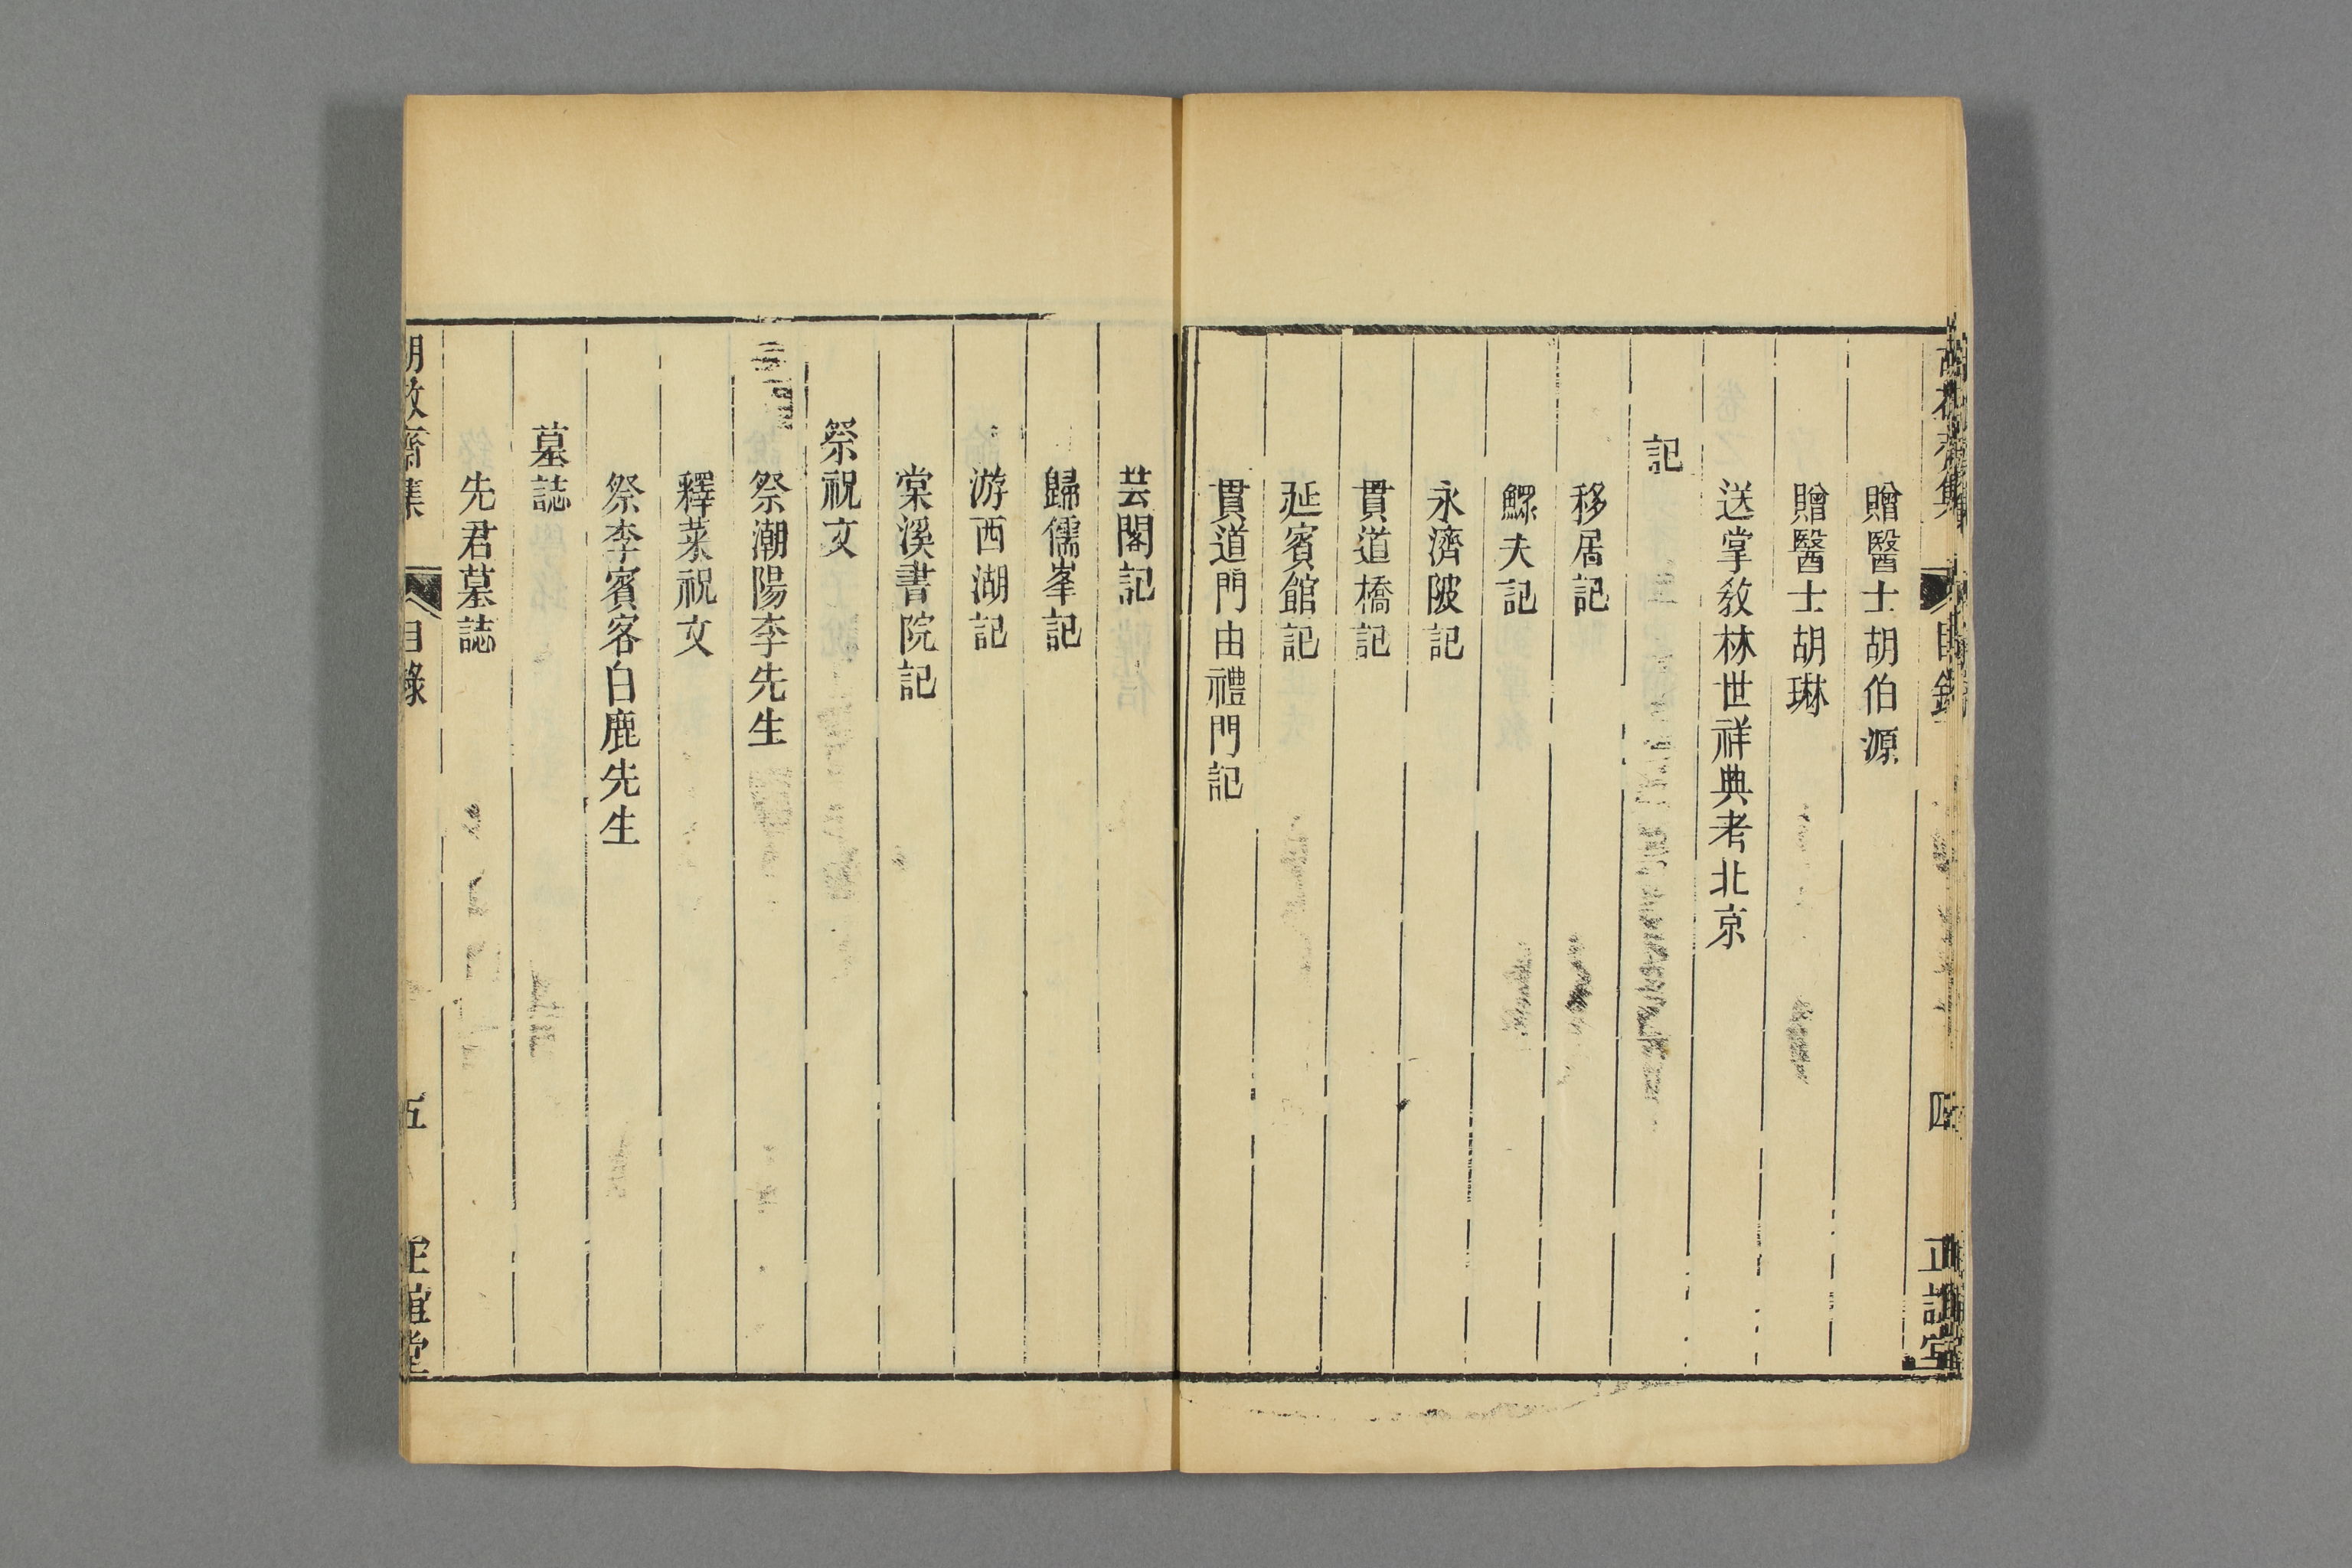 贈醫士胡伯源
贈醫士胡琳
送掌敎林世祥典考北京
記
移居記
鰥夫記
永濟陂記
貫道橋記
延賓館記
貫道門由禮門記
芸閣記
歸儒峯記
游西湖記
棠溪書院記
祭祝文
祭潮陽李先生
釋菜祝文
祭李賓客白鹿先生
墓誌
先君墓誌
胡敬齋集
目錄
五
正誼堂